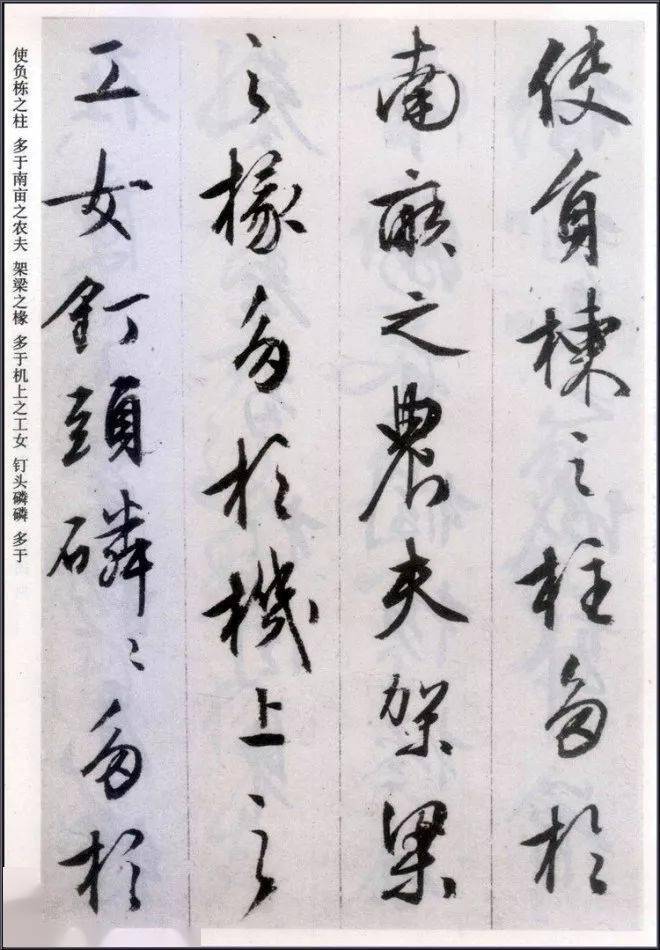 使負棟之柱多於
南畝之農夫架梁
之椽多於機上之
工女釘頭磷〻多於
使负栋之柱 多于南亩之农夫 架梁之椽 多于机上之工女 钉头磷磷 多于